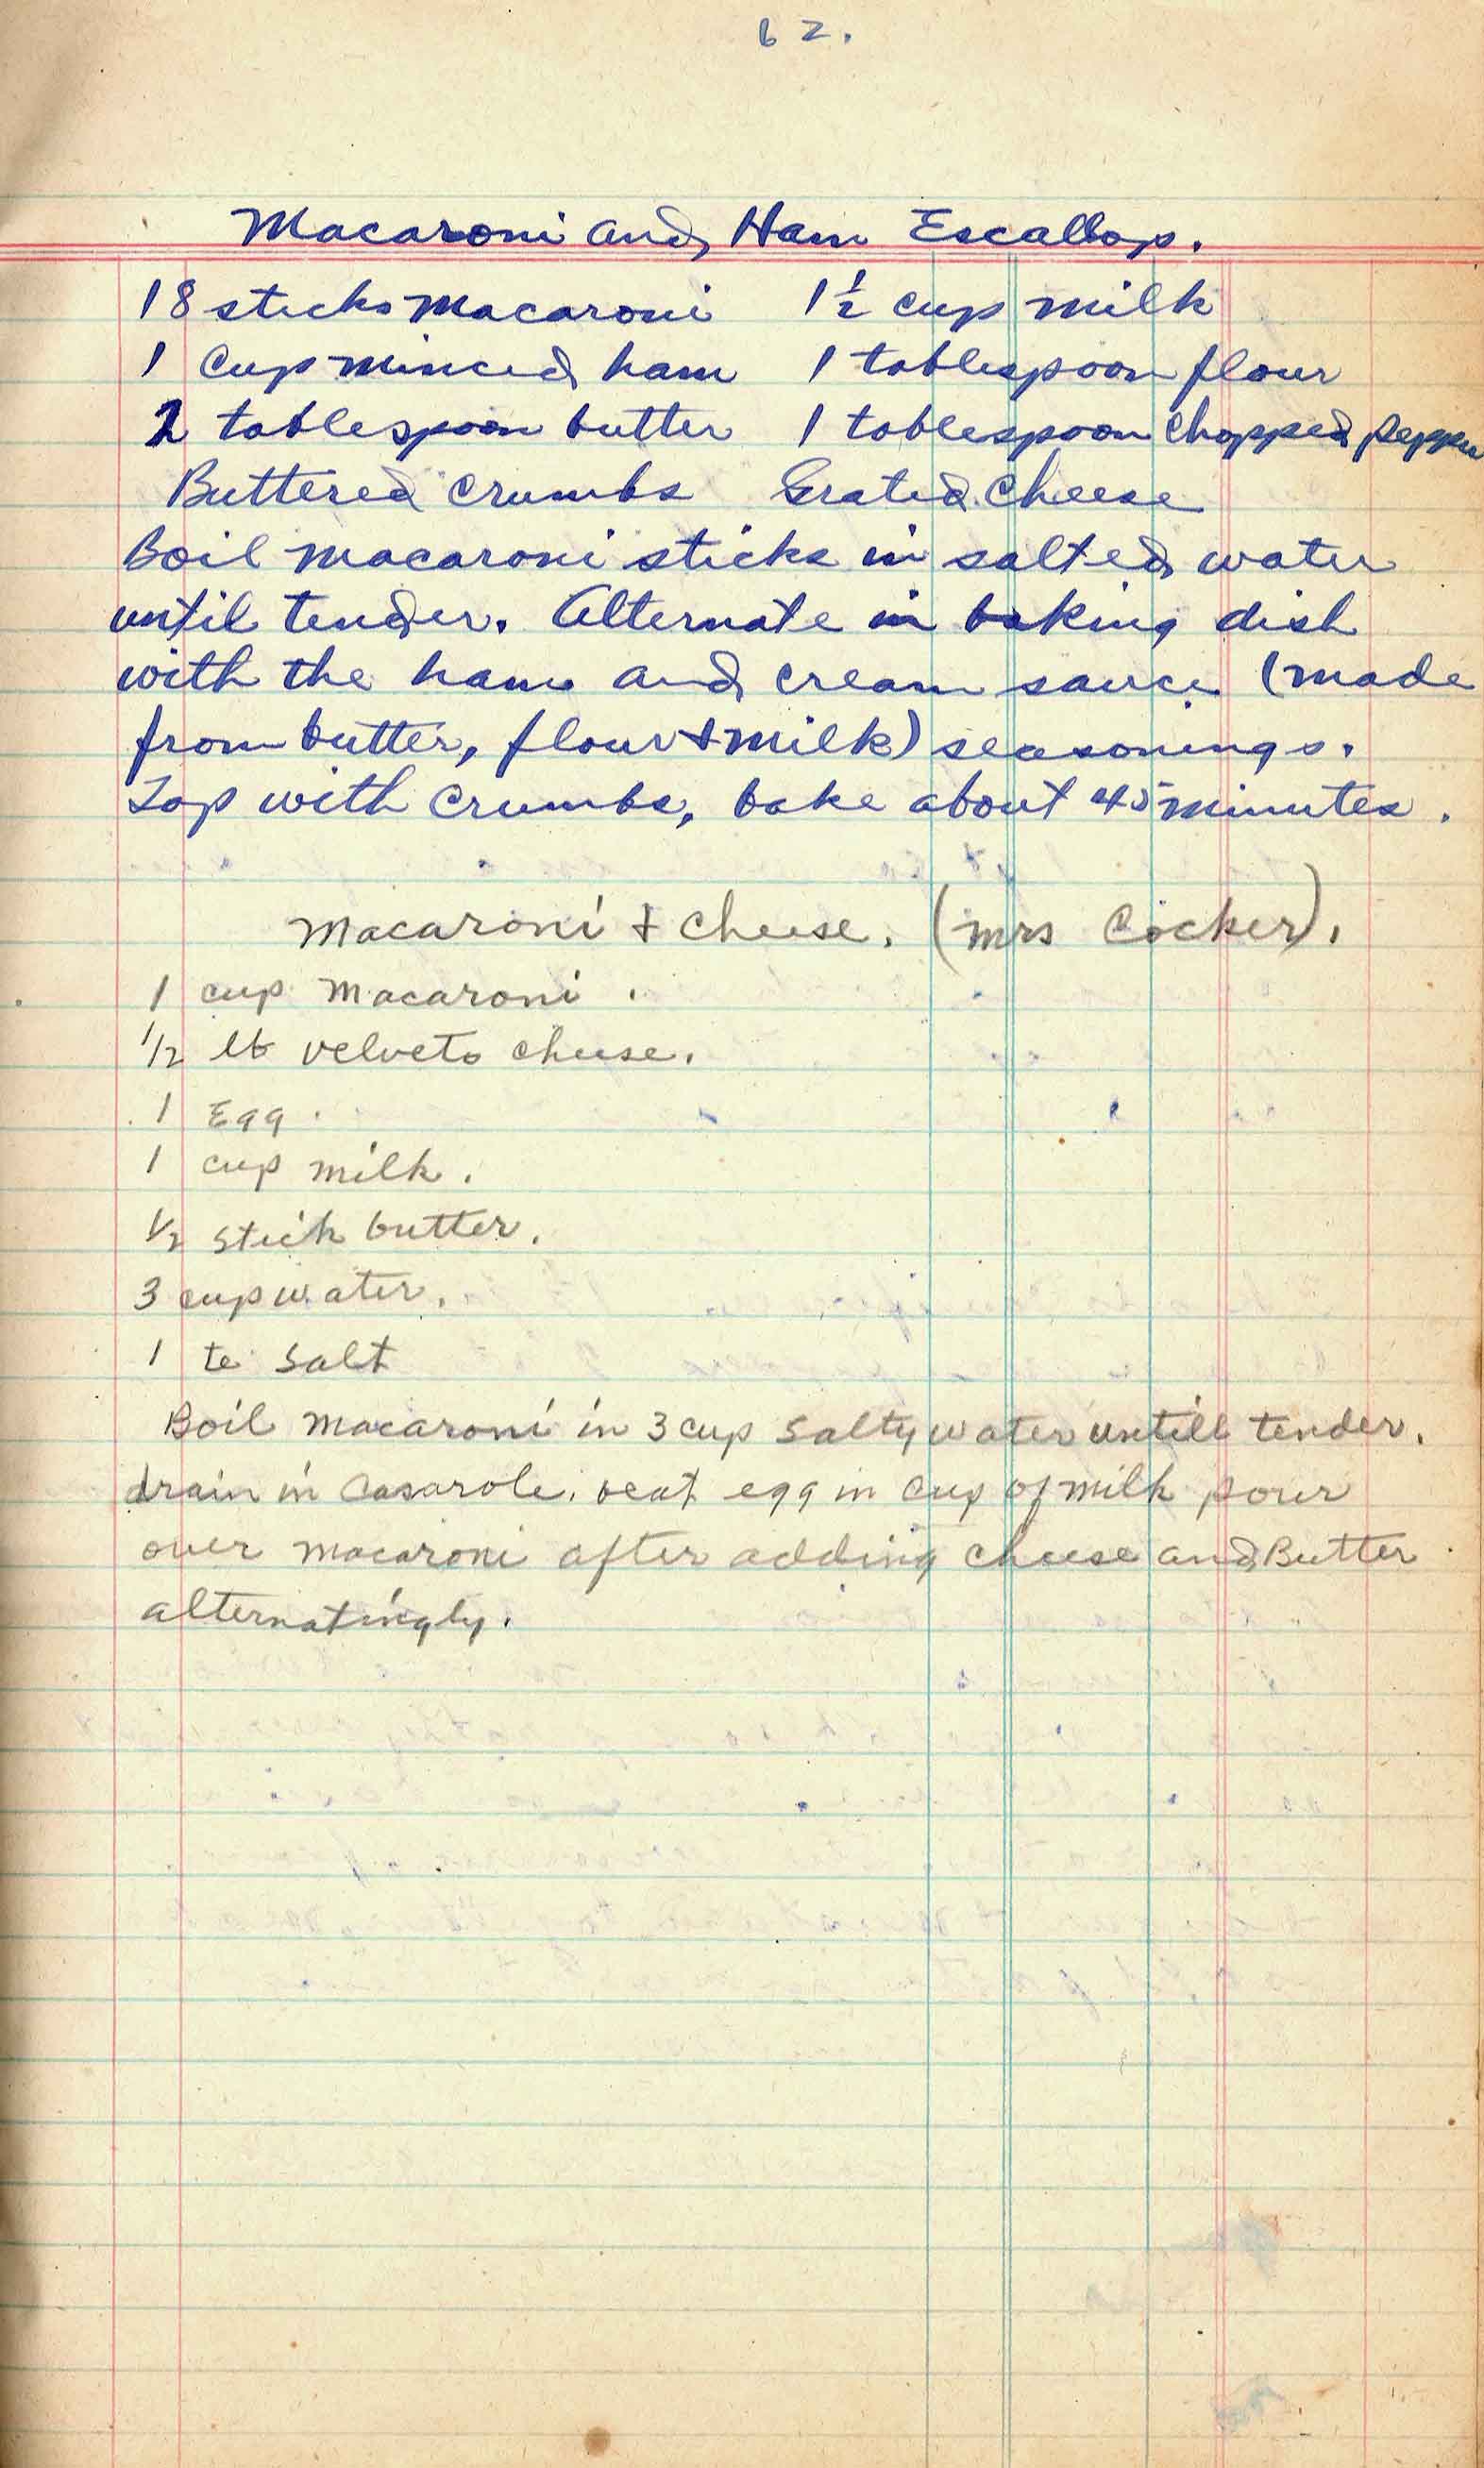 62.
Macaroni and Ham Escallop.
18 sticks macaroni 1½ cup milk
1 cup minced ham 1 tablespoon flour
2 tablespoon butter 1 tablespoon chopped pepper
Buttered crumbs Grated cheese
Boil macaroni sticks in salted water
until tender. Alternate in baking dish
with the ham and cream sauce (made
from butter, flour + milk) seasonings.
Top with crumbs, bake about 45 minutes.
Macaroni + cheese. (Mrs Cocker).
1 cup macaroni.
1/2 lb velveto cheese.
1 Egg.
1 cup milk.
1/2 stick butter.
3 cup water.
1 te salt
Boil macaroni in 3 cup salty water untill tender.
drain in casarole. beat egg in cup of milk pour
over macaroni after adding cheese and Butter
alternatingly.